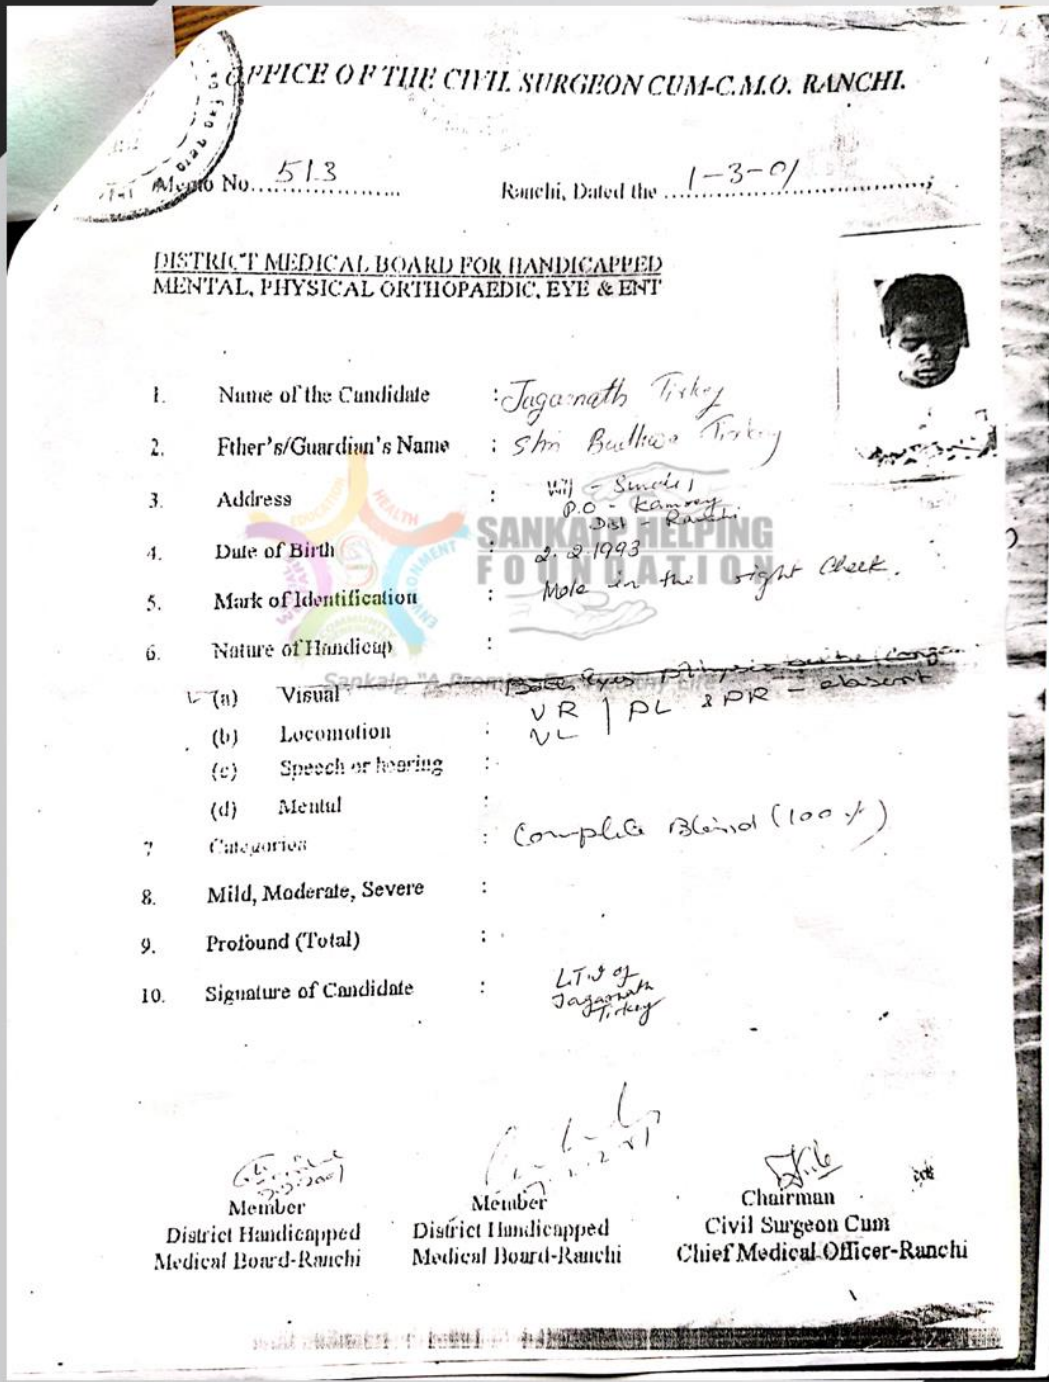 OFFICE OF THE CIVIL SURGEON CUM-C.M.O. RANCHI.
Memo No. 513
Ranchi, Dated the 1-3-01
DISTRICT MEDICAL BOARD FOR HANDICAPPED
MENTAL, PHYSICAL ORTHOPAEDIC, EYE & ENT
1. Name of the Candidate : Jagarnath Tirkey
2. Fther's/Guardian's Name : Shri Tirkey
3. Address : Vill -
P.O - Kamrey
Dist - Ranchi
4. Date of Birth : 2.2.1993
5. Mark of Identification : Mole in the right Cheek.
6. Nature of Handicap :
(a) Visual Both Eyes
VR
VL | PL & PR - absent
(b) Locomotion :
(c) Speech or hearing :
(d) Mental :
7 Categories : Complete Blind (100 %)
8. Mild, Moderate, Severe :
9. Profound (Total) :
10. Signature of Candidate : L.T.I of
Jagarnath
Tirkey
Member
District Handicapped
Medical Board-Ranchi
Member
District Handicapped
Medical Board-Ranchi
Chairman
Civil Surgeon Cum
Chief Medical Officer-Ranchi
SANKALP HELPING
FOUNDATION
EDUCATION
HEALTH
ENVIRONMENT
COMMUNITY